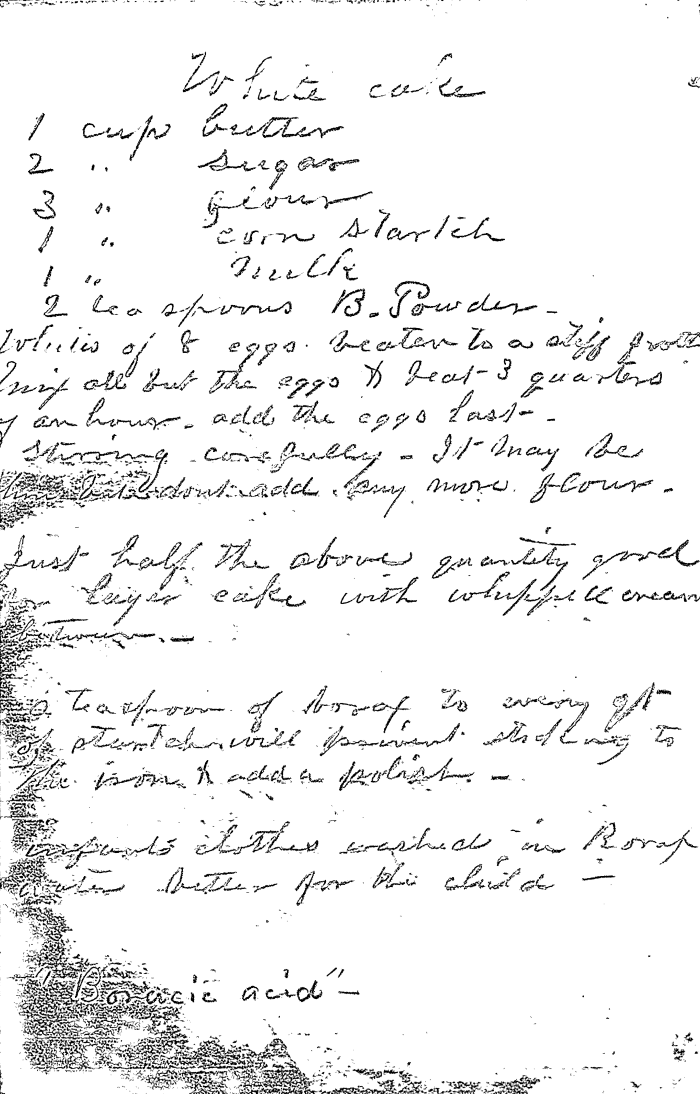 White cake
1 cup butter
2 " sugar
3 " flour
1 " corn startch
1 " milk
2 teaspoons B. Powder -
Whites of 8 eggs beaten to a stiff froth
Mix all but the eggs & beat 3 quarters
of an hour - add the eggs last -
stirring carefully - It may be
thin but dont add any more flour -
Just half the above quantity good
for layer cake with whipped cream
between. -
a teaspoon of borax to every qt
of startch will prevent sticking to
the iron & add a polish. -
infants clothes washed in Borax
water better for the child -
"Boracic acid" -